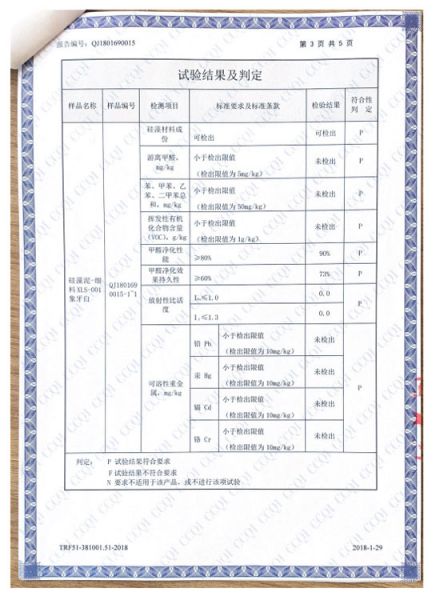 报告编号：QJ1801690015
第 3 页 共 5 页
试验结果及判定
样品名称 样品编号 检测项目 标准要求及标准条款 检验结果 符合性
判 定
硅藻泥-细
料 XLS-001
象牙白
QJ180169
0015-1~1
硅藻材料成
份
可检出 可检出 P
游离甲醛，
mg/kg
小于检出限值
（检出限值为 5mg/kg）
未检出 P
苯、甲苯、乙
苯、二甲苯总
和，mg/kg
小于检出限值
（检出限值为 50mg/kg）
未检出 P
挥发性有机
化合物含量
（VOC），g/kg
小于检出限值
（检出限值为 1g/kg）
未检出 P
甲醛净化性
能
≥80% 90% P
甲醛净化效
果持久性
≥60% 73% P
放射性比活
度
≤1.0 0.0
≤1.3 0.0
P
可溶性重金
属，mg/kg
铅 Pb
小于检出限值
（检出限值为 10mg/kg）
未检出
汞 Hg
小于检出限值
（检出限值为 10mg/kg）
未检出
镉 Cd
小于检出限值
（检出限值为 10mg/kg）
未检出
铬 Cr
小于检出限值
（检出限值为 10mg/kg）
未检出
P
判定： P 试验结果符合要求
F 试验结果不符合要求
N 要求不适用于该产品，或不进行该项试验
TRF51-381001.51-2018
2018-1-29
CCQI